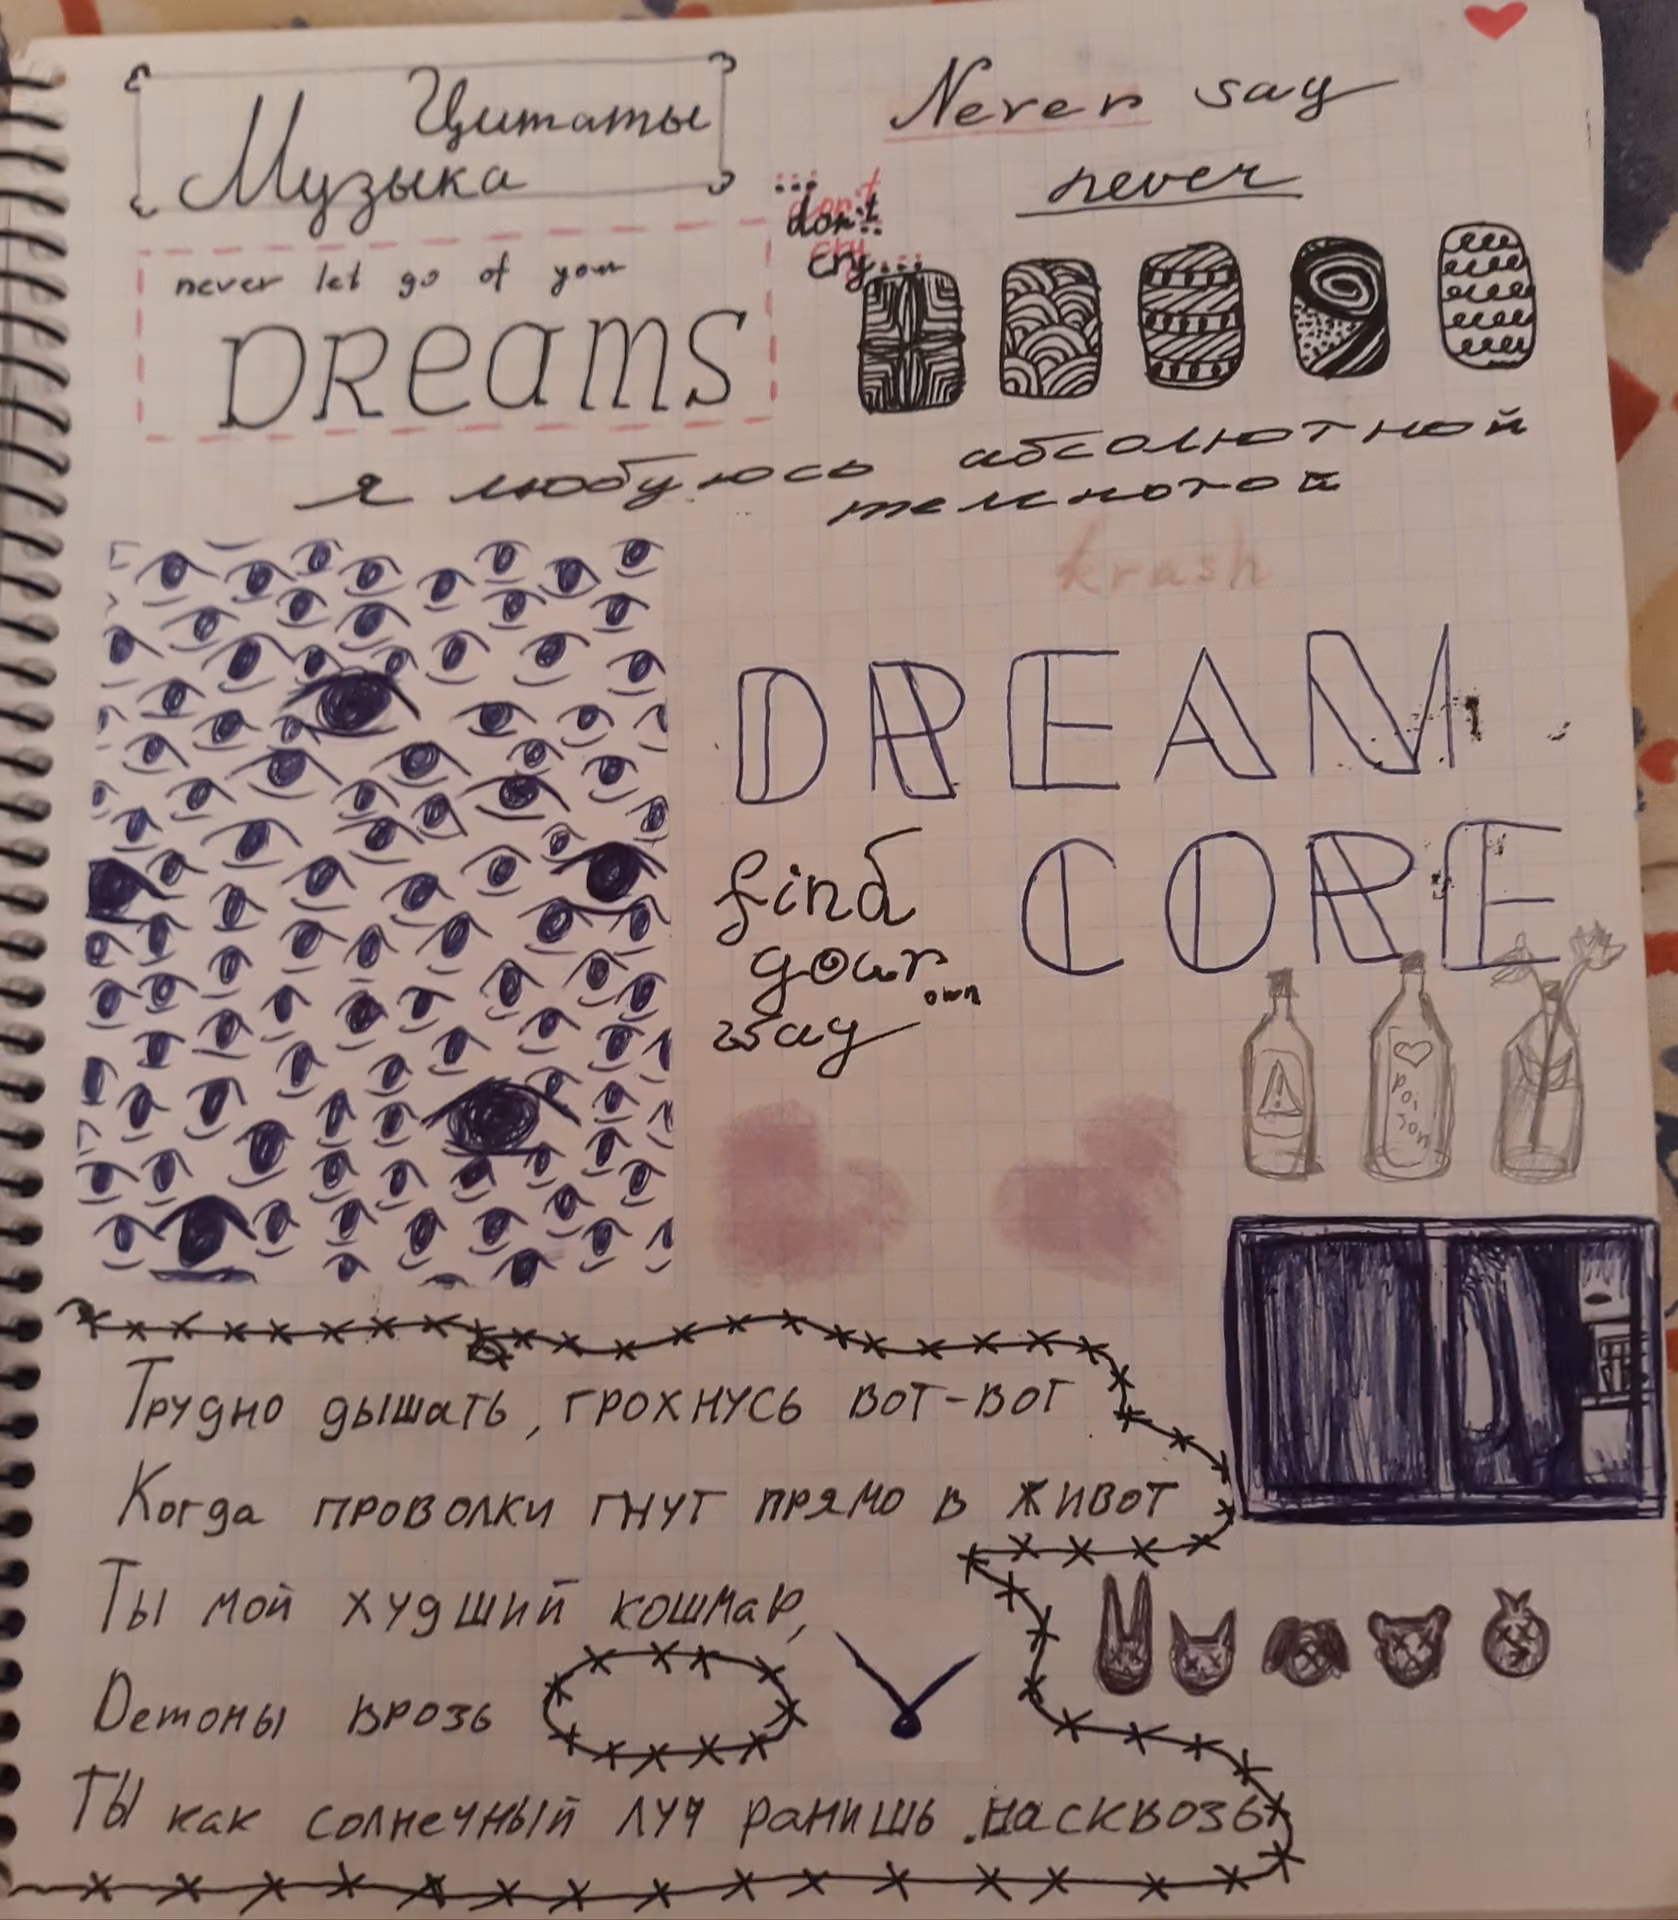 Цитаты
Музыка
Never say
never
...don't
cry...
never let go of your
DReams
я любуюсь абсолютной
темнотой
krash
DREAM
CORE
find
your own
way
poi
son
Трудно дышать, грохнусь вот-вот
Когда проволки гнут прямо в живот
Ты мой худший кошмар,
Демоны врозь
Ты как солнечный луч ранишь насквозь